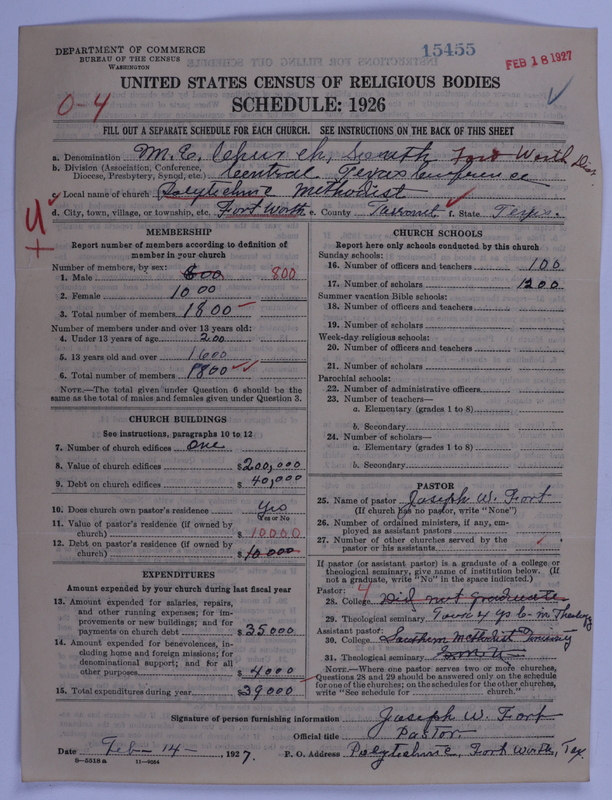 DEPARTMENT OF COMMERCE
BUREAU OF THE CENSUS
WASHINGTON
15455
FEB 18 1927
UNITED STATES CENSUS OF RELIGIOUS BODIES
SCHEDULE: 1926
0-4
FILL OUT A SEPARATE SCHEDULE FOR EACH CHURCH. SEE INSTRUCTIONS ON THE BACK OF THIS SHEET
a. Denomination M. E. Church, South, Fort Worth Dis.
b. Division (Association, Conference, Diocese, Presbytery, Synod, etc.) Central Texas Conference
c. Local name of church Polytechnic Methodist
d. City, town, village, or township, etc. Fort Worth e. County Tarrant f. State Texas.
MEMBERSHIP
Report number of members according to definition of
member in your church
Number of members, by sex:
1. Male 800 800
2. Female 1000
3. Total number of members 1800
Number of members under and over 13 years old:
4. Under 13 years of age 200
5. 13 years old and over 1600
6. Total number of members 1800
NOTE.—The total given under Question 6 should be the
same as the total of males and females given under Question 3.
CHURCH BUILDINGS
See instructions, paragraphs 10 to 12
7. Number of church edifices One
8. Value of church edifices $200,000
9. Debt on church edifices $40,000
10. Does church own pastor's residence Yes
Yes or No
11. Value of pastor's residence (if owned by
church) $10000
12. Debt on pastor's residence (if owned by
church) $10,000
EXPENDITURES
Amount expended by your church during last fiscal year
13. Amount expended for salaries, repairs,
and other running expenses; for im-
provements or new buildings; and for
payments on church debt $35000
14. Amount expended for benevolences, in-
cluding home and foreign missions; for
denominational support; and for all
other purposes $4000
15. Total expenditures during year $39000
CHURCH SCHOOLS
Report here only schools conducted by this church
Sunday schools:
16. Number of officers and teachers 100
17. Number of scholars 1200
Summer vacation Bible schools:
18. Number of officers and teachers
19. Number of scholars
Week-day religious schools:
20. Number of officers and teachers
21. Number of scholars
Parochial schools:
22. Number of administrative officers
23. Number of teachers—
a. Elementary (grades 1 to 8)
b. Secondary
24. Number of scholars—
a. Elementary (grades 1 to 8)
b. Secondary
PASTOR
25. Name of pastor Joseph W. Fort
(If church has no pastor, write "None")
26. Number of ordained ministers, if any, em-
ployed as assistant pastors
27. Number of other churches served by the
pastor or his assistants
If pastor (or assistant pastor) is a graduate of a college or
theological seminary, give name of institution below. (If
not a graduate, write "No" in the space indicated.)
Pastor: 4
28. College Did not graduate
29. Theological seminary Took 4 yrs C. in Theology
Assistant pastor:
30. College Southern Methodist University
31. Theological seminary S.M.U.
NOTE.—Where one pastor serves two or more churches,
Questions 28 and 29 should be answered only on the schedule
for one of the churches; on the schedules for the other churches,
write "See schedule for church."
Signature of person furnishing information Joseph W. Fort
Official title Pastor
Date Feb - 14 -, 1927. P. O. Address Polytechnic, Fort Worth, Tex.
8-5518a 11-9024